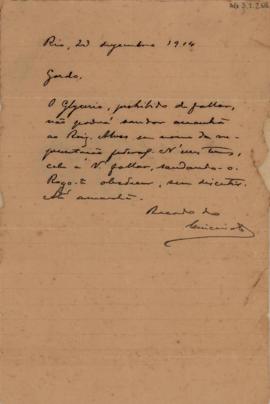 Rio, 23 dezembro 1914
Gordo,
O Glycerio, prohibido de fallar,
não poderá saudar amanhã
ao Rodg. Alves em nome da re-
presentação federal. N'estes termos,
cabe a V. fallar, saudando-o.
Rogo-te obedecer, sem discutir.
Até amanhã.
Recado do